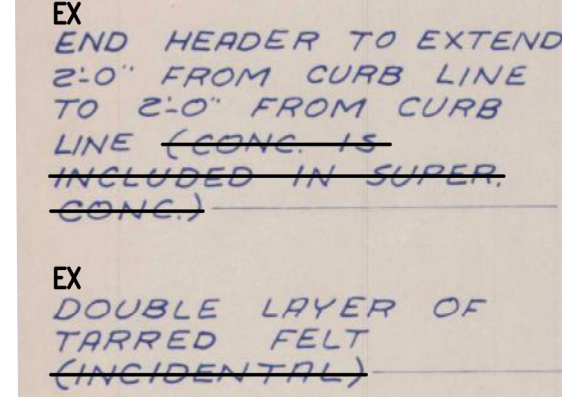 EX
END HEADER TO EXTEND
2'-0" FROM CURB LINE
TO 2'-0" FROM CURB
LINE (CONC. IS
INCLUDED IN SUPER.
CONC.)
EX
DOUBLE LAYER OF
TARRED FELT
(INCIDENTAL)